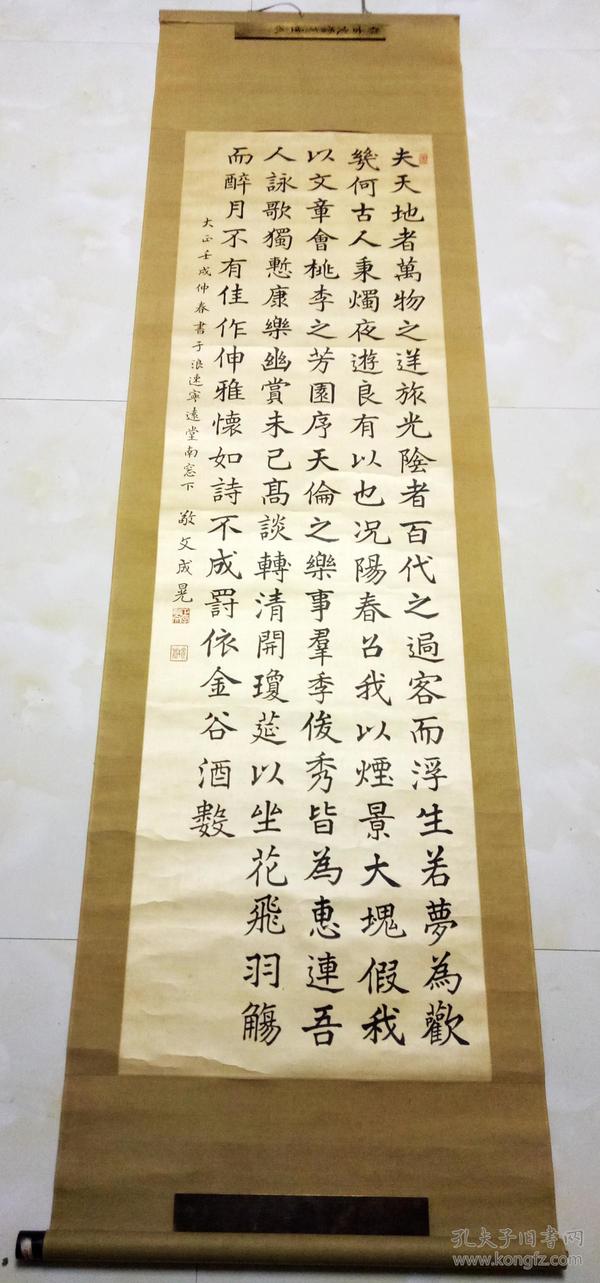 夫天地者萬物之逆旅光陰者百代之過客而浮生若夢為歡
幾何古人秉燭夜遊良有以也況陽春召我以煙景大塊假我
以文章會桃李之芳園序天倫之樂事羣季俊秀皆為惠連吾
人詠歌獨慙康樂幽賞未已高談轉清開瓊莚以坐花飛羽觴
而醉月不有佳作伸雅懷如詩不成罰依金谷酒數
大正壬戌仲春書于浪速寧遠堂南窓下
敬文成晃
孔夫子旧书网
www.kongfz.com